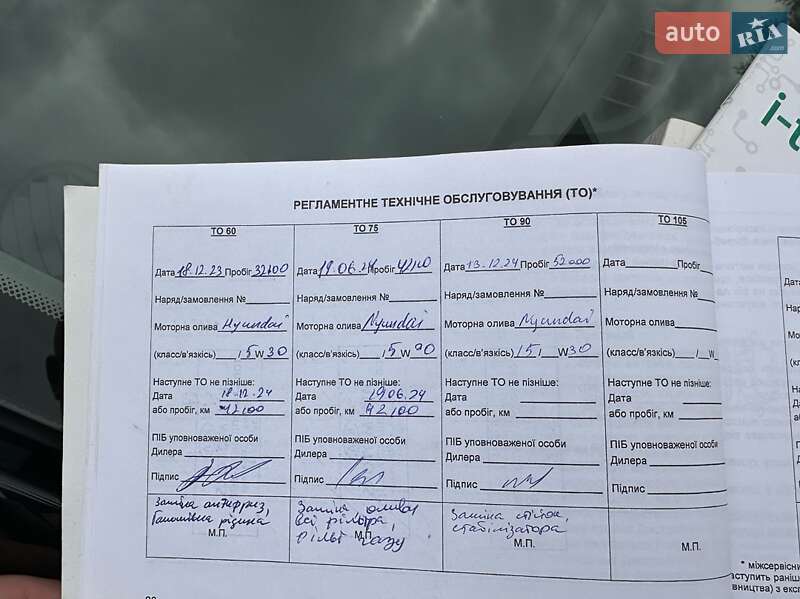 auto RIA.com
i-t
РЕГЛАМЕНТНЕ ТЕХНІЧНЕ ОБСЛУГОВУВАННЯ (ТО)*
ТО 60
Дата 18.12.23 Пробіг 32100
Наряд/замовлення №
Моторна олива Hyundai
(класс/в'язкість) / 5 W 30
Наступне ТО не пізніше:
Дата 18.12.24
або пробіг, км 42100
ПІБ уповноваженої особи
Дилера
Підпис
Заміна антифриз,
Гальмівна рідина
М.П.
ТО 75
Дата 19.06.24 Пробіг
Наряд/замовлення №
Моторна олива Hyundai
(класс/в'язкість) / 5 W 90
Наступне ТО не пізніше:
Дата 19.06.24
або пробіг, км 42100
ПІБ уповноваженої особи
Дилера
Підпис
Заміна оливи
всі фільтра,
фільт газу
М.П.
ТО 90
Дата 13.12.24 Пробіг 52000
Наряд/замовлення №
Моторна олива Hyundai
(класс/в'язкість) 15 / W 30
Наступне ТО не пізніше:
Дата
або пробіг, км
ПІБ уповноваженої особи
Дилера
Підпис
Заміна стійок,
стабілізатора
М.П.
ТО 105
Дата Пробіг
Наряд/замовлення №
Моторна олива
(класс/в'язкість) / W
Наступне ТО не пізніше:
Дата
або пробіг, км
ПІБ уповноваженої особи
Дилера
Підпис
М.П.
* міжсервісни
аступить раніш
вництва) з експ